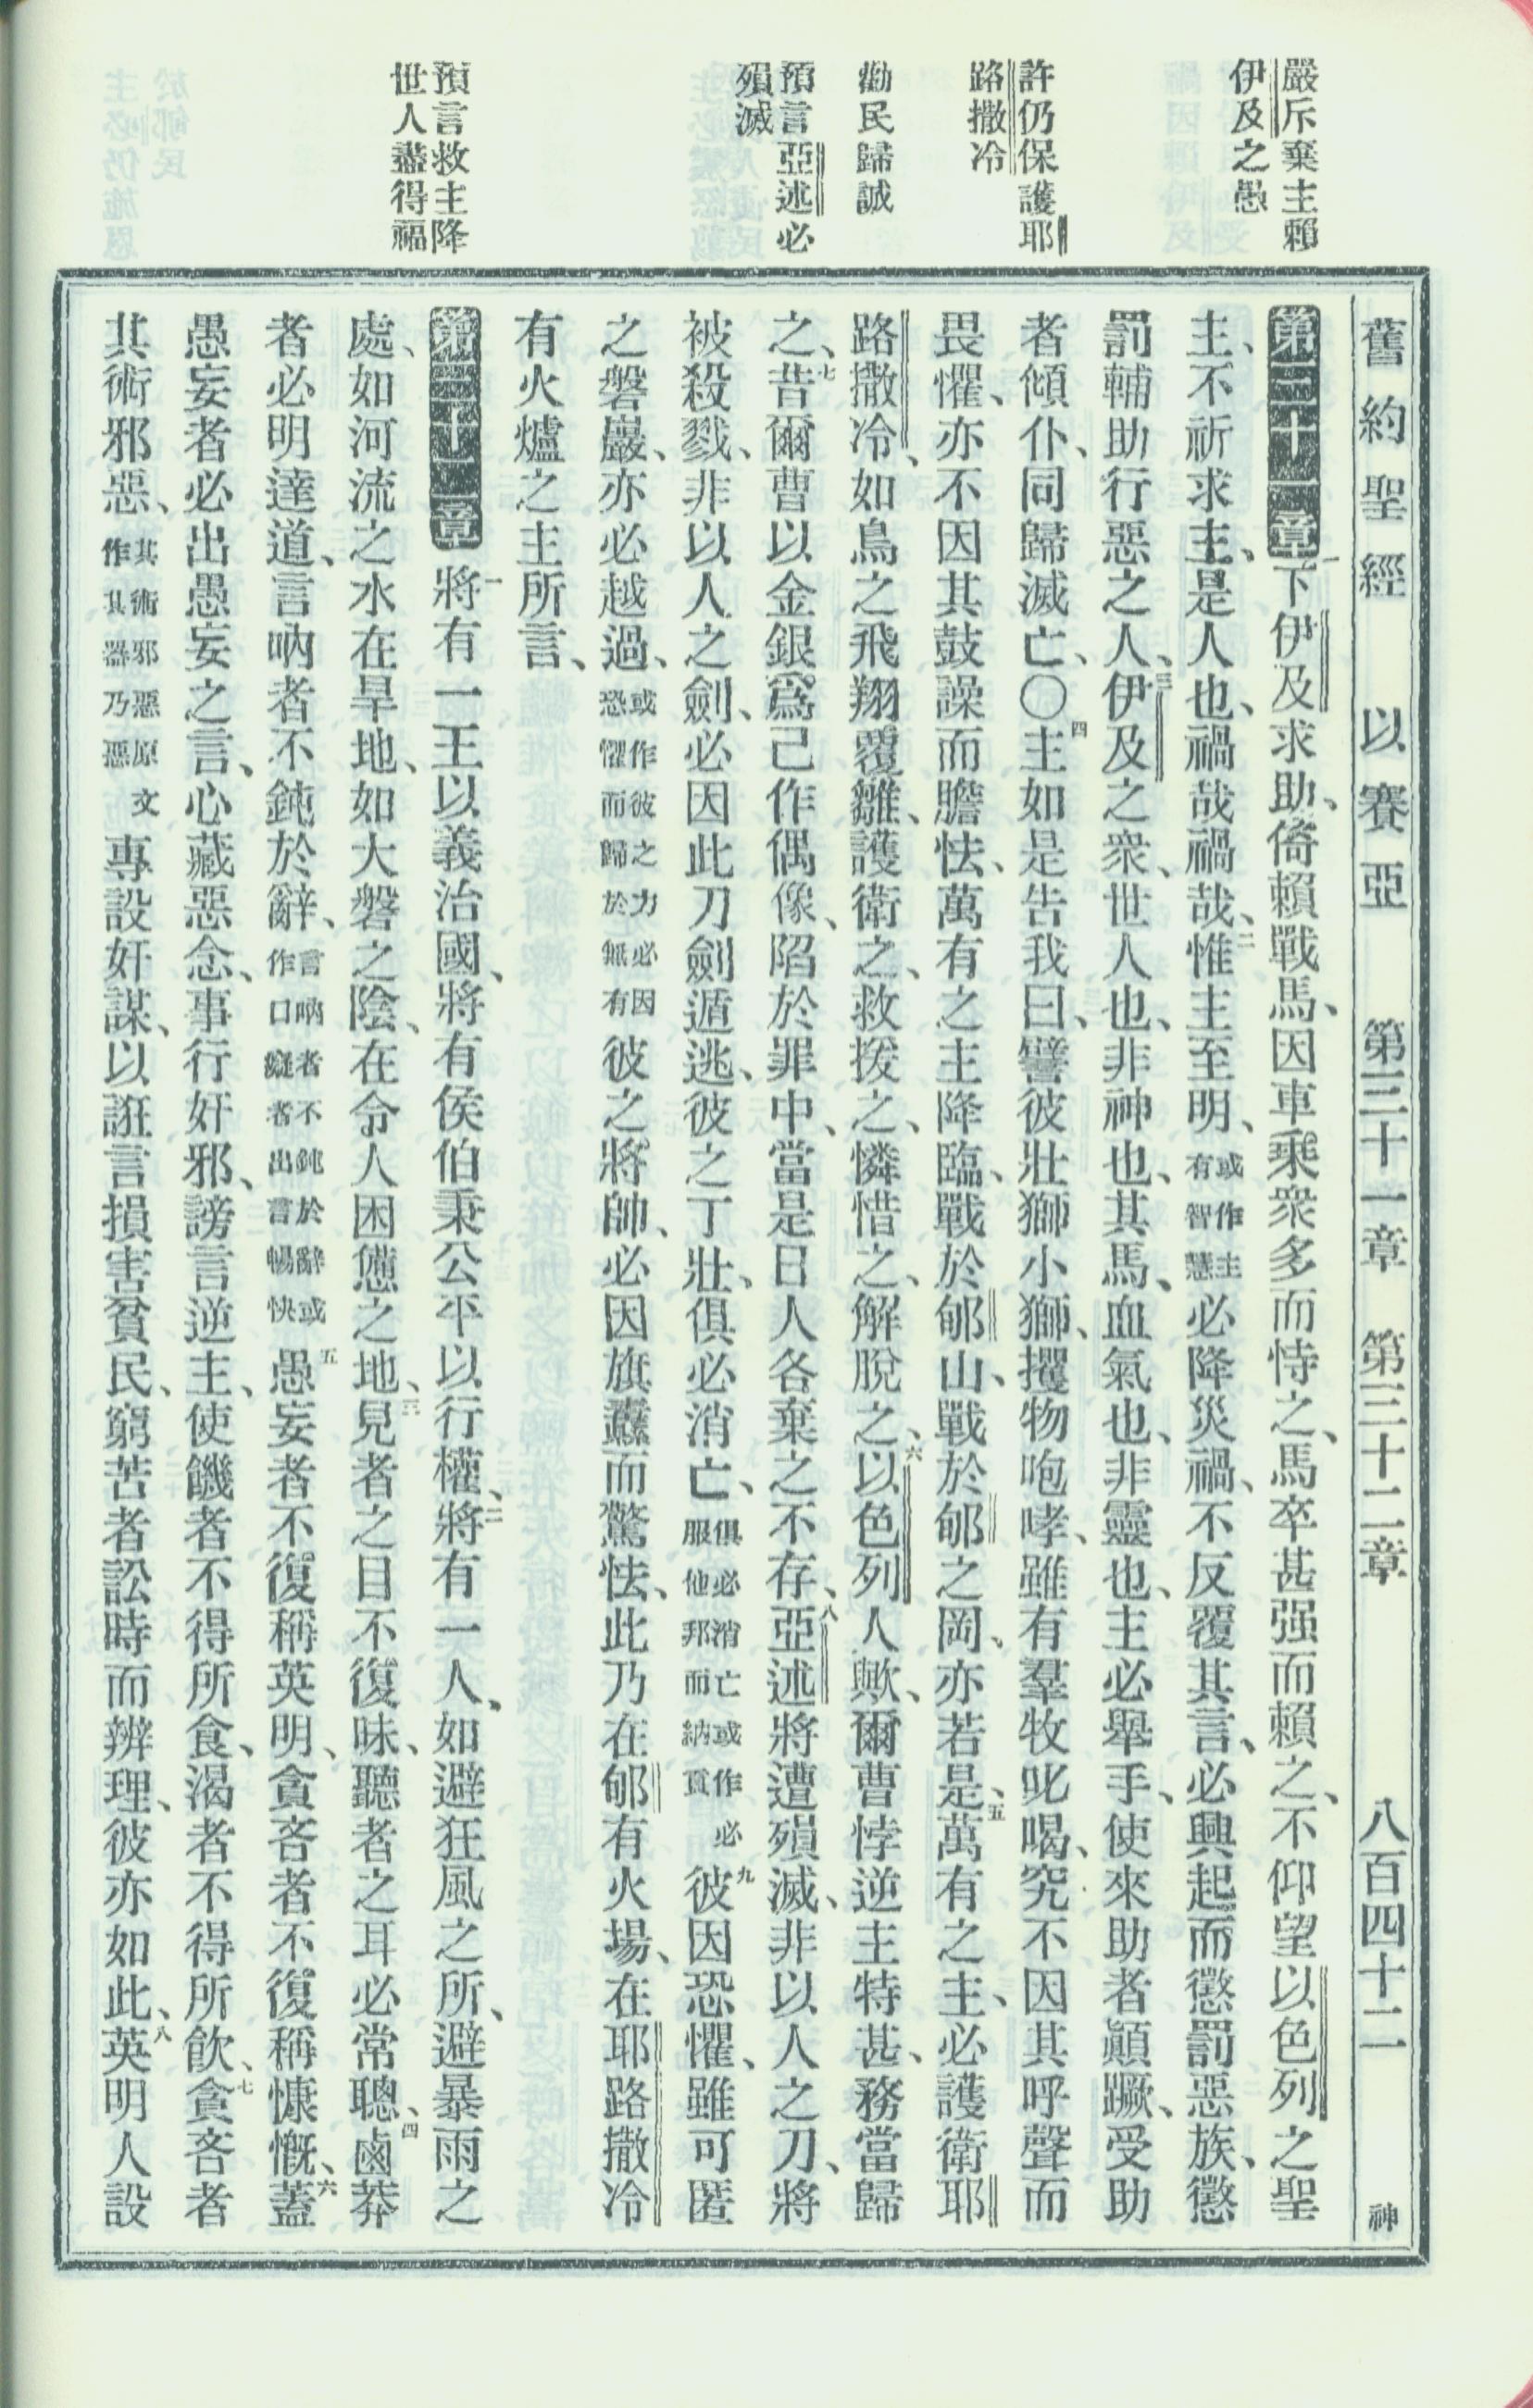 嚴斥棄主賴
伊及之愚
許仍保護耶
路撒冷
勸民歸誠
預言亞述必
殞滅
預言救主降
世人盡得福
舊約聖經 以賽亞 第三十一章 第三十二章 八百四十二 神
第三十一章 一下伊及求助、倚賴戰馬、因車乘衆多而恃之、馬卒甚强而賴之、不仰望以色列之聖
主、不祈求主、是人也、禍哉禍哉、二惟主至明、或作主有智慧必降災禍、不反覆其言、必興起而懲罰惡族、懲
罰輔助行惡之人、三伊及之衆、世人也、非神也、其馬、血氣也、非靈也、主必舉手、使來助者顚蹶、受助
者傾仆、同歸滅亡、〇四主如是告我曰、譬彼壯獅小獅、攫物咆哮、雖有羣牧叱喝、究不因其呼聲而
畏懼、亦不因其鼓譟而膽怯、萬有之主降臨、戰於郇山、戰於郇之岡、亦若是、五萬有之主、必護衛耶
路撒冷、如鳥之飛翔覆雛、護衛之、救拨之、憐惜之、解脫之、六以色列人歟、爾曹悖逆主特甚、務當歸
之、七昔爾曹以金銀爲己作偶像、陷於罪中、當是日人各棄之不存、八亞述將遭殞滅、非以人之刀、將
被殺戮、非以人之劍、必因此刀劍遁逃、彼之丁壯、俱必消亡、俱必消亡或作必服他邦而納貢九彼因恐懼、雖可匿
之磐巖、亦必越過、或作彼之力必因恐懼而歸於無有彼之將帥、必因旗纛而驚怯、此乃在郇有火場、在耶路撒冷
有火爐之主所言、
第三十二章 一將有一王以義治國、將有侯伯秉公平以行權、二將有一人、如避狂風之所、避暴雨之
處、如河流之水在旱地、如大磐之陰、在令人困憊之地、三見者之目不復昧、聽者之耳必常聰、四鹵莽
者必明達道、言吶者不鈍於辭、言吶者不鈍於辭或作口癡者出言暢快五愚妄者不復稱英明、貪吝者不復稱慷慨、六蓋
愚妄者必出愚妄之言、心藏惡念、事行奸邪、謗言逆主、使饑者不得所食、渴者不得所飲、七貪吝者
其術邪惡、其術邪惡原文作其器乃惡專設奸謀、以誑言損害貧民、窮苦者訟時而辨理、彼亦如此、八英明人設